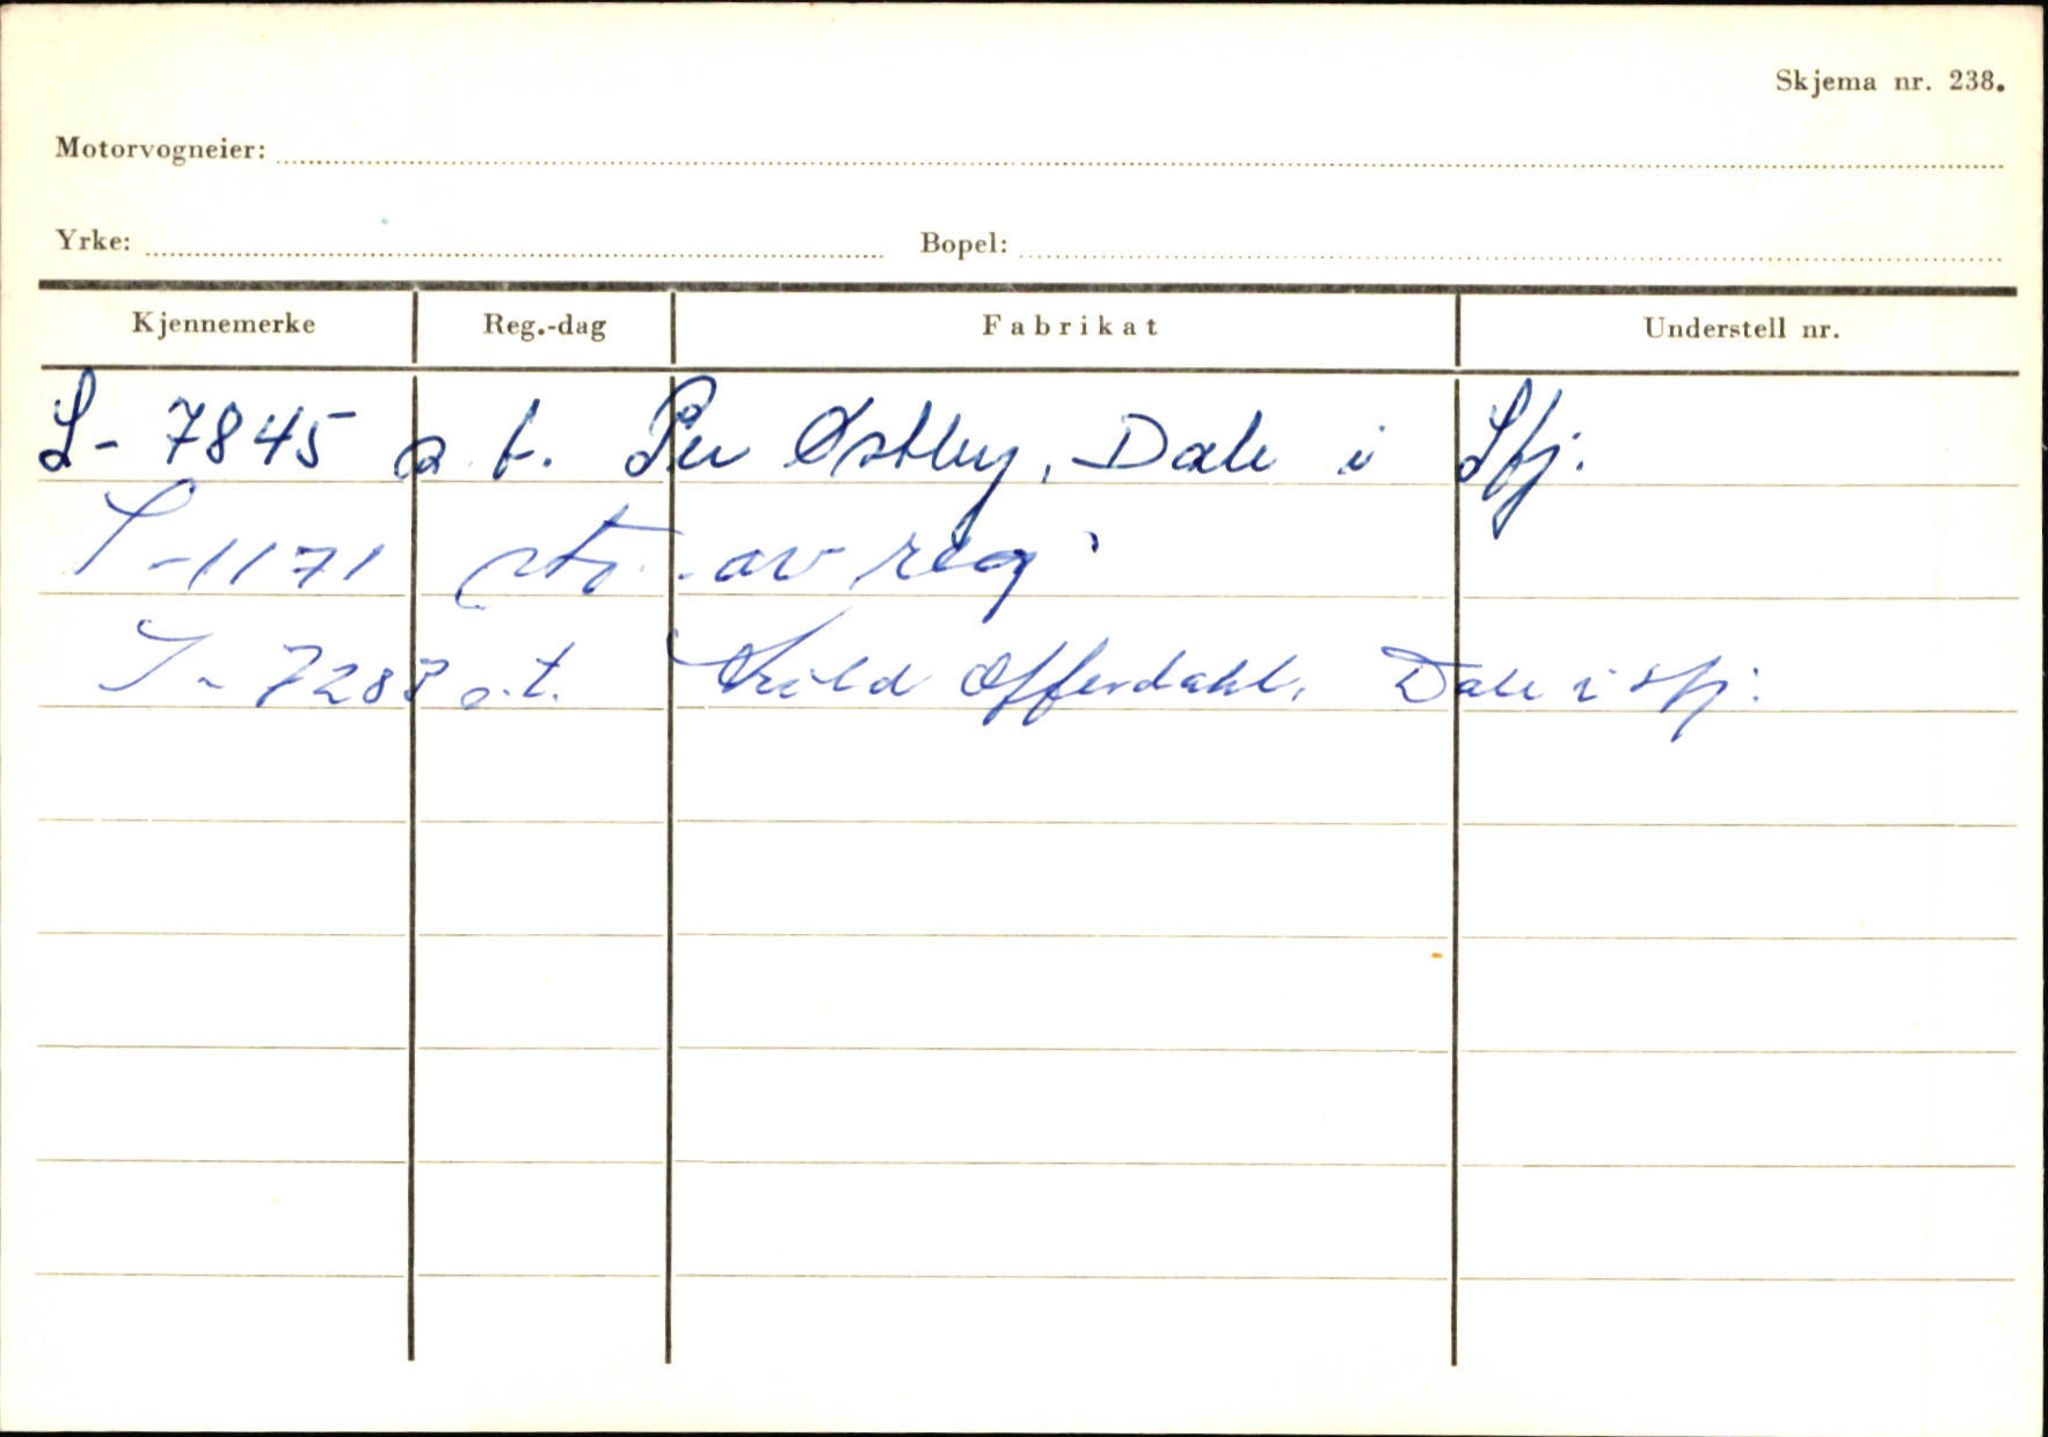 Skjema nr. 238.
Motorvogneier:
Yrke: Bopel:
Kjennemerke Reg.-dag Fabrikat Understell nr.
S- 7845 a t. Per Østby, Dale i Sfj.
S-1171 str. av reg.
S-7283 e.t. Offerdahl, Dale i sfj.